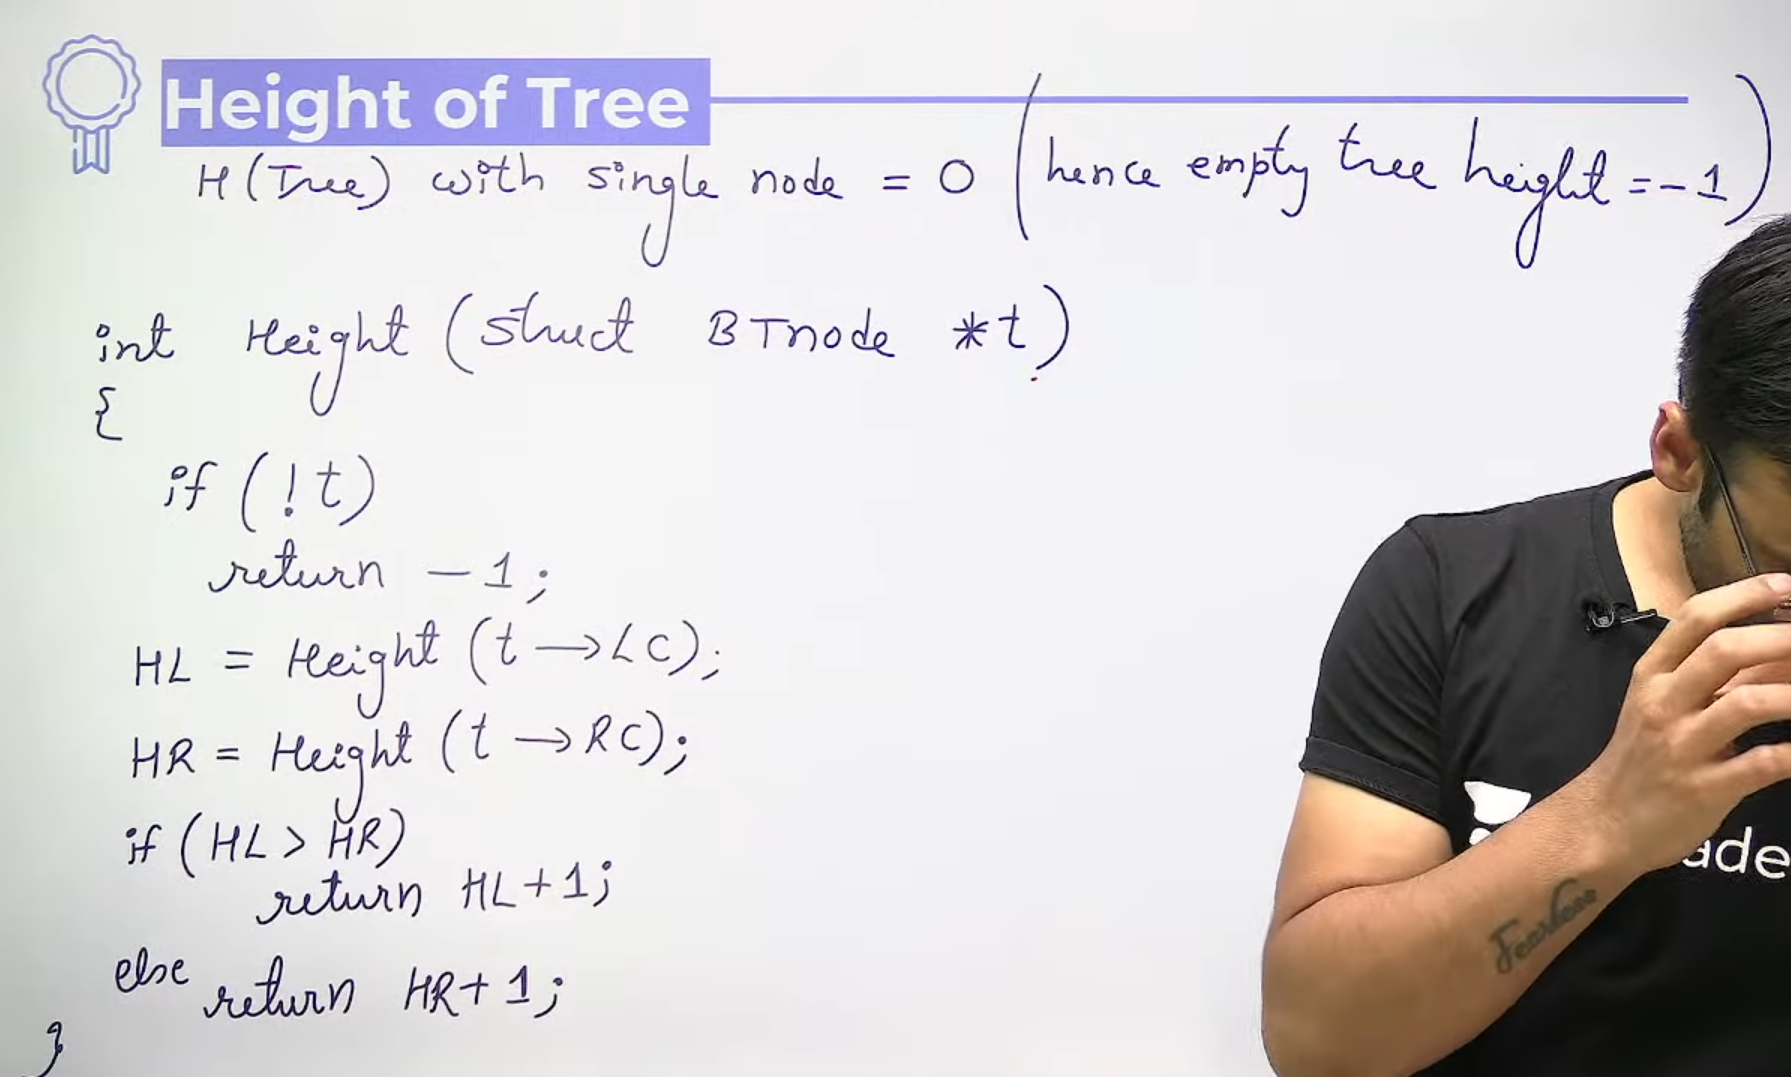 Height of Tree
H(Tree) with single node = 0 (hence empty tree height = -1)
int Height (struct BTnode *t)
{
if (!t)
return -1;
HL = Height (t → LC);
HR = Height (t → RC);
if (HL > HR)
return HL+1;
else return HR+1;
}
ade
Fearless